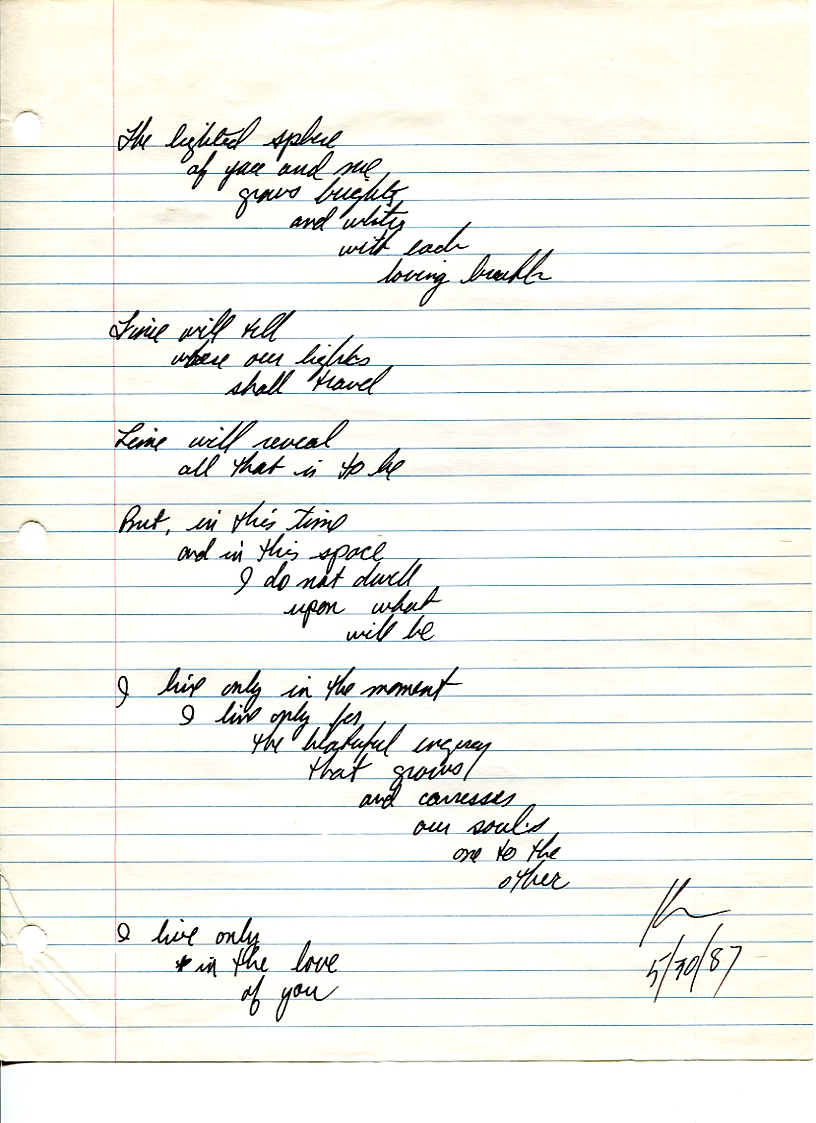 The lighted sphere
of you and me
grows brighter
and whiter
with each
loving breath
Time will tell
where our lights
shall travel
Time will reveal
all that is to be
But, in this time
and in this space
I do not dwell
upon what
will be
I live only in the moment
I live only for
the energy
that grows
and carresses
our souls
one to the
other
I live only
in the love
of you
5/30/87